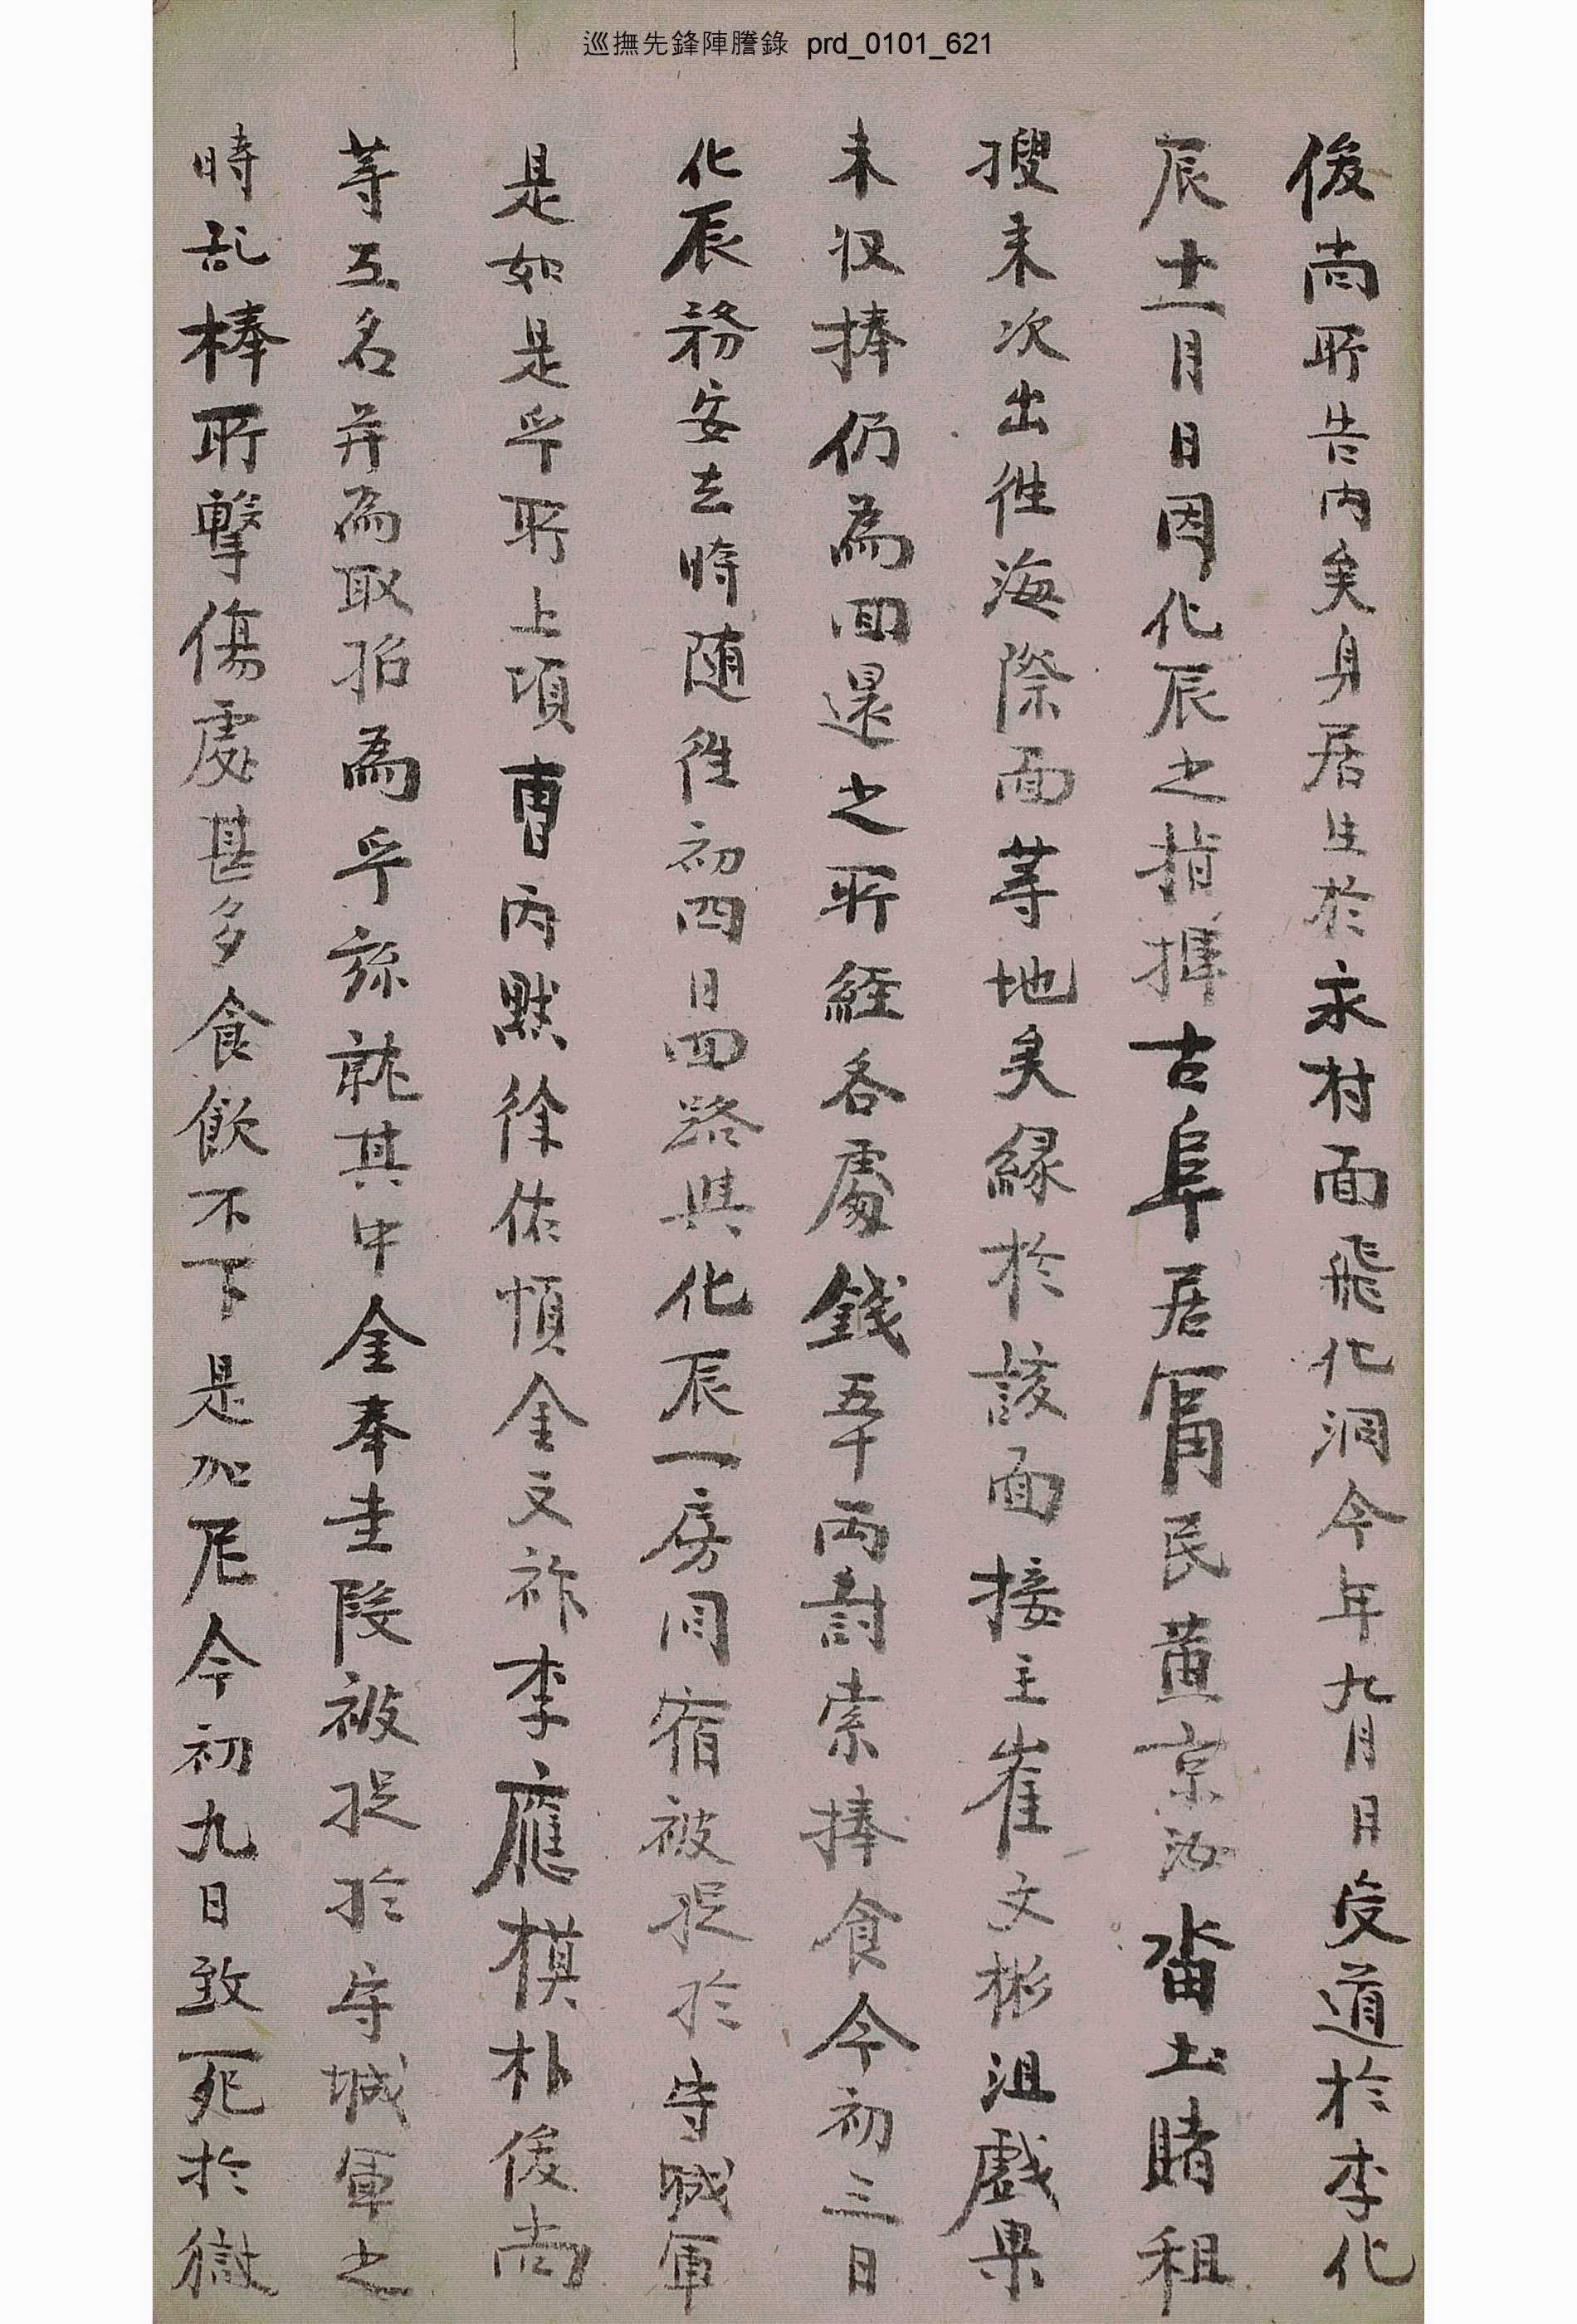 巡撫先鋒陣謄錄 prd_0101_621
俊尚所告内矣身居生於永村面飛化洞今年九月月受道於李化
辰十一月日因化辰之指揮古阜居富民黃京汝畓土賭租
搜来次出徃海際面等地矣緣於該面接主崔文彬沮戱果
未収捧仍為回還之所經各處錢五十兩討索捧食今初三日
化辰務安去時随徃初四日回路與化辰一房同宿被捉於守城軍
是如是乎所上項曹丙黙徐佑順金文祚李應模朴俊尚
等五名并為取招為乎旀就其中金奉圭段被捉於守城軍之
時乱棒所擊傷處甚多食飲不下是加尼今初九日致死於獄